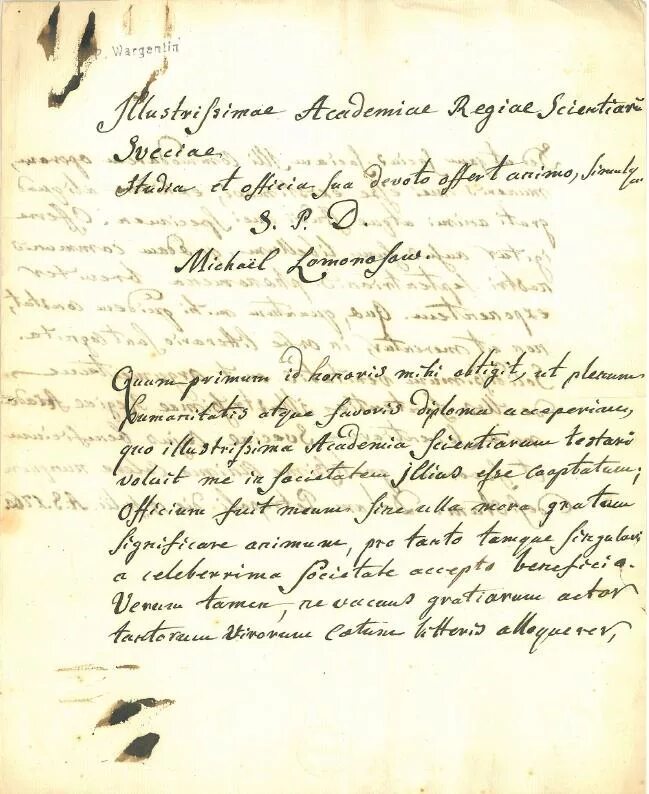 P. Wargentin
Illustrissimae Academiae Regiae Scientiarū
Sveciae
Studia et officia sua devoto offert animo, simulq͞
S. P. D.
Michaël Lomonosow.
Quam primum id honoris mihi obtigit, ut plenum
humanitatis atque favoris diploma acceperim,
quo illustrissima Academia scientiarum testari
voluit me in societatem illius esse cooptatum;
officium fuit meum sine ulla mora gratum
significare animum, pro tanto tamque singulari
a celeberrima societate accepto beneficio.
Verum tamen, ne vacuus gratiarum actor
tantorum virorum cœtum litteris alloquerer,